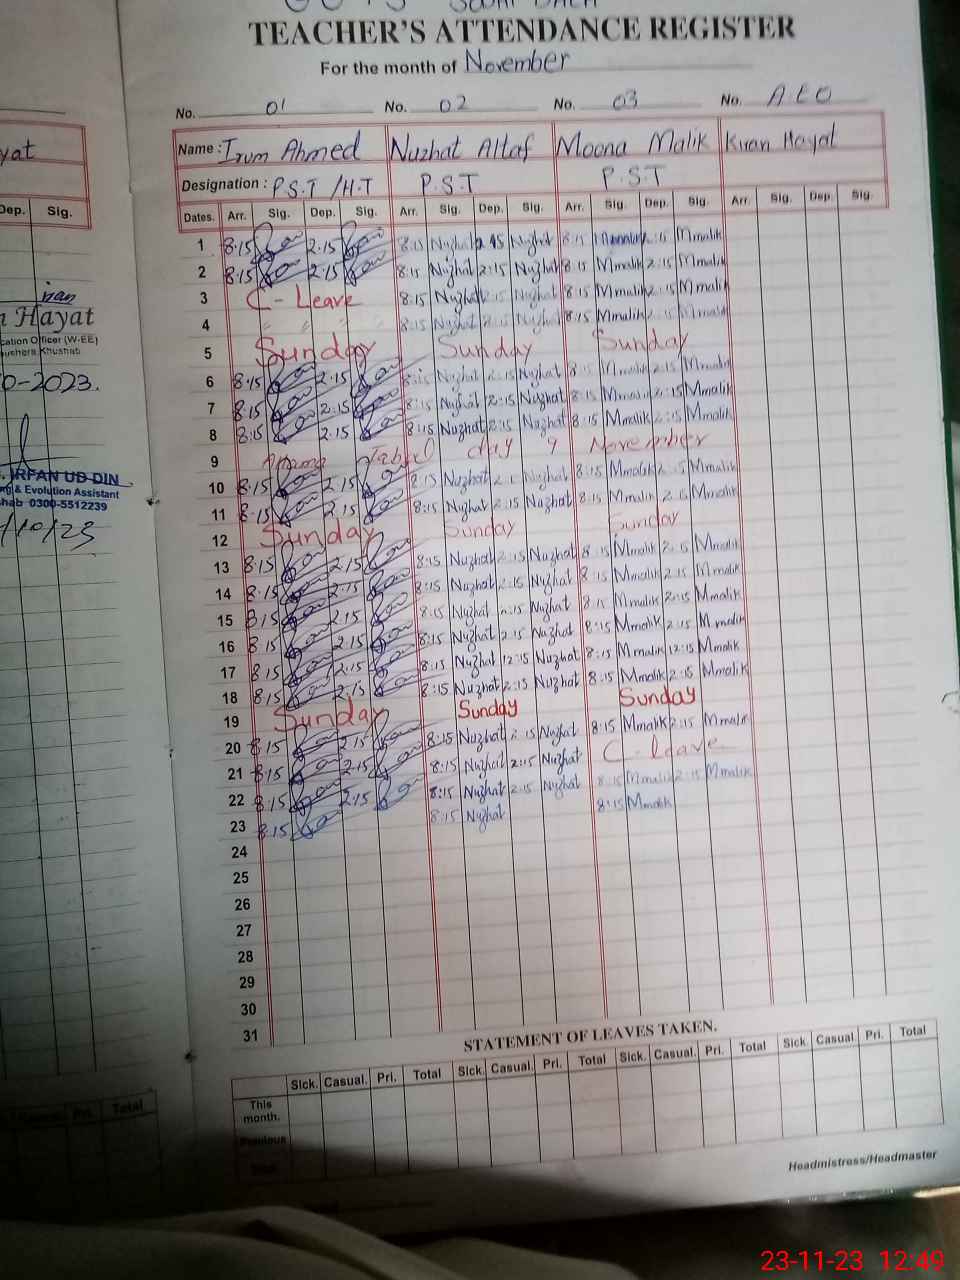 TEACHER'S ATTENDANCE REGISTER
For the month of November
No. 01 No. 02 No. 03 No. A.E.O
Name : Irum Ahmed Nuzhat Altaf Moona Malik Kiran Hayat
Designation : P.S.T / H.T P.S.T P.S.T
Dates. Arr. Sig. Dep. Sig. Arr. Sig. Dep. Sig. Arr. Sig. Dep. Sig. Arr. Sig. Dep. Sig.
1 8:15 2:15 8:15 Nuzhat Nuzhat 8:15 2:15 Mmalik
2 8:15 2:15 8:15 Nuzhat 2:15 Nuzhat 8:15 Mmalik 2:15 Mmalik
3 C - Leave 8:15 Nuzhat 2:15 Nuzhat 8:15 Mmalik 2:15 Mmalik
4 8:15 Nuzhat 2:15 Nuzhat 8:15 Mmalik 2:15 Mmalik
5 Sunday Sunday Sunday
6 8:15 2:15 8:15 Nuzhat 2:15 Nuzhat 8:15 Mmalik 2:15 Mmalik
7 8:15 2:15 8:15 Nuzhat 2:15 Nuzhat 8:15 Mmalik 2:15 Mmalik
8 8:15 2:15 8:15 Nuzhat 2:15 Nuzhat 8:15 Mmalik 2:15 Mmalik
9 Iqbal day 9 November
10 8:15 2:15 8:15 Nuzhat Nuzhat 8:15 Mmalik 2:15 Mmalik
11 8:15 2:15 8:15 Nuzhat 2:15 Nuzhat 8:15 Mmalik 2:15 Mmalik
12 Sunday Sunday Sunday
13 8:15 2:15 8:15 Nuzhat 2:15 Nuzhat 8:15 Mmalik 2:15 Mmalik
14 8:15 2:15 8:15 Nuzhat 2:15 Nuzhat 8:15 Mmalik 2:15 Mmalik
15 8:15 2:15 8:15 Nuzhat 2:15 Nuzhat 8:15 Mmalik 2:15 Mmalik
16 8:15 2:15 8:15 Nuzhat 2:15 Nuzhat 8:15 Mmalik 2:15 Mmalik
17 8:15 2:15 8:15 Nuzhat 12:15 Nuzhat 8:15 Mmalik 12:15 Mmalik
18 8:15 2:15 8:15 Nuzhat 2:15 Nuzhat 8:15 Mmalik 2:15 Mmalik
19 Sunday Sunday Sunday
20 8:15 2:15 8:15 Nuzhat 2:15 Nuzhat 8:15 Mmalik 2:15 Mmalik
21 8:15 2:15 8:15 Nuzhat 2:15 Nuzhat C - leave
22 8:15 2:15 8:15 Nuzhat 2:15 Nuzhat 8:15 Mmalik 2:15 Mmalik
23 8:15 8:15 Nuzhat 8:15 Mmalik
24
25
26
27
28
29
30
31
STATEMENT OF LEAVES TAKEN.
Sick. Casual. Pri. Total Sick. Casual. Pri. Total Sick. Casual. Pri. Total Sick. Casual. Pri. Total
This month.
Previous
Headmistress/Headmaster
yat
Dep. Sig.
Hayat
cation Officer (W-EE)
Khushab
0-2023.
IRFAN UD DIN
g & Evolution Assistant
hab 0300-5512239
/10/23
Total
23-11-23 12:49